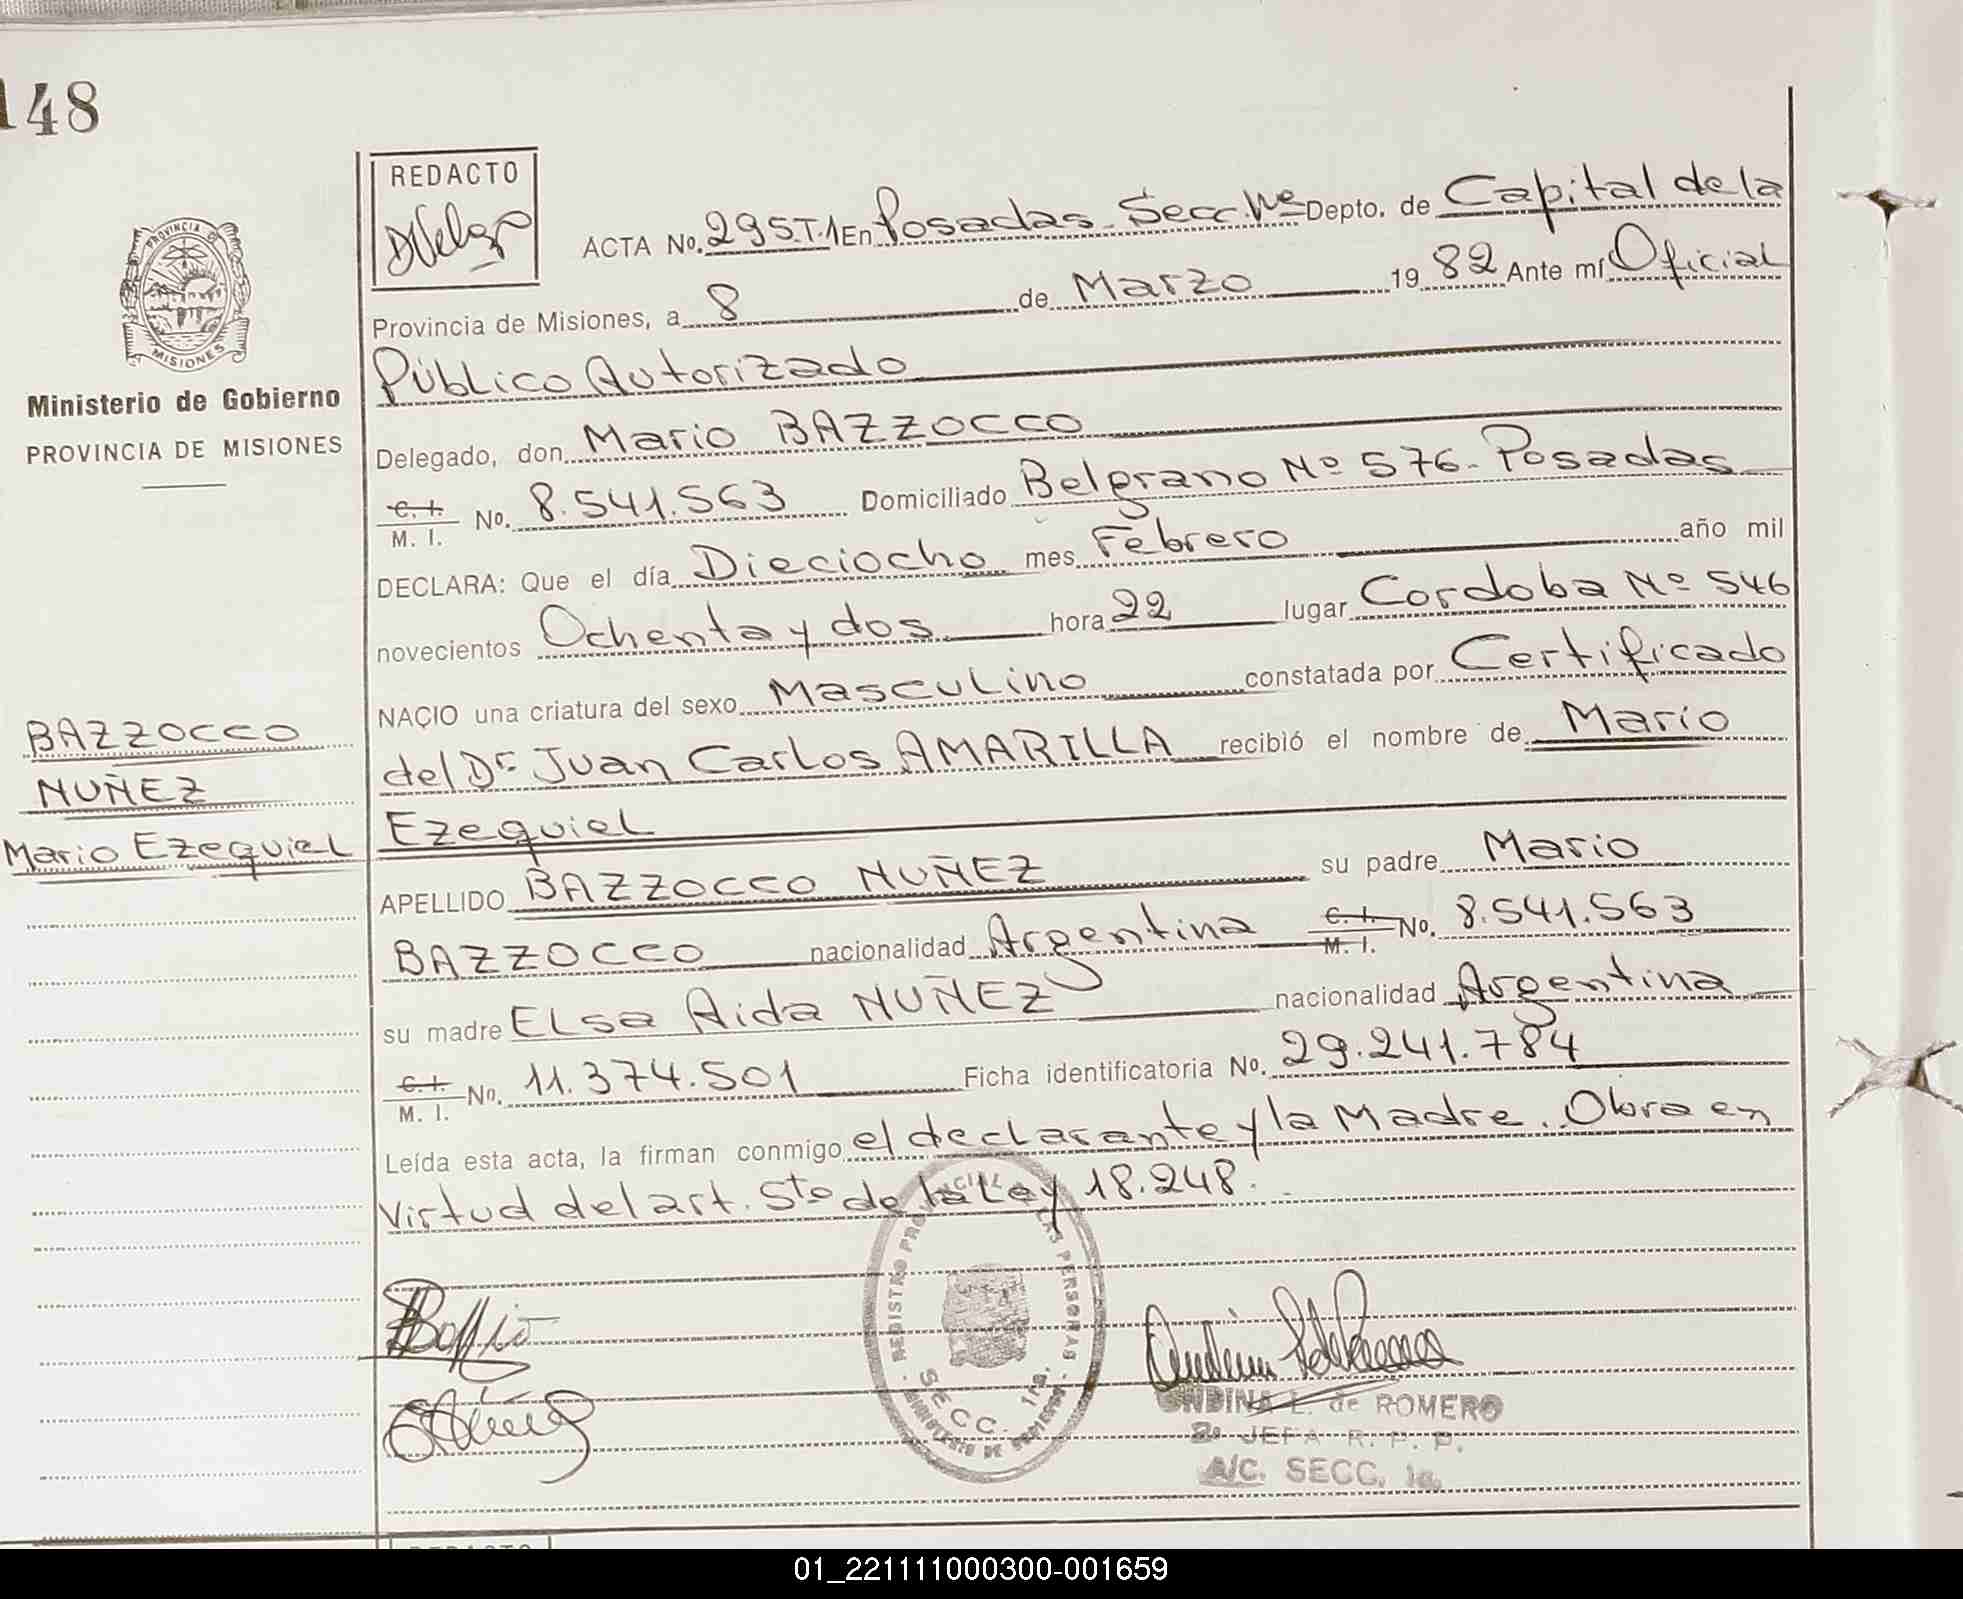 148
REDACTO
ACTA No. 295.T.1 En Posadas - Secc. 1ra Depto. de Capital de la
Provincia de Misiones, a 8 de Marzo 19 82 Ante mí Oficial
Público Autorizado
PROVINCIA DE
MISIONES
Ministerio de Gobierno
PROVINCIA DE MISIONES
Delegado, don Mario BAZZOCCO
C. I.
M. I. No. 8.541.563 Domiciliado Belgrano Nº 576 - Posadas
DECLARA: Que el día Dieciocho mes Febrero año mil
novecientos Ochenta y dos hora 22 lugar Cordoba Nº 546
NACIO una criatura del sexo Masculino constatada por Certificado
del Dr Juan Carlos AMARILLA recibió el nombre de Mario
Ezequiel
BAZZOCCO
NUÑEZ
Mario Ezequiel
APELLIDO BAZZOCCO NUÑEZ su padre Mario
BAZZOCCO nacionalidad Argentina C. I. M. I. No. 8.541.563
su madre Elsa Aida NUÑEZ nacionalidad Argentina
C. I.
M. I. No. 11.374.501 Ficha identificatoria No. 29.241.784
Leída esta acta, la firman conmigo el declarante y la Madre. Obra en
virtud del art. 5to de la Ley 18.248.
REGISTRO PROVINCIAL DE LAS PERSONAS
SECC. 1ra.
MINISTERIO DE GOBIERNO
ONDINA L. de ROMERO
2a JEFA R. P. P.
A/C. SECC. 1a.
REDACTO
01_221111000300-001659